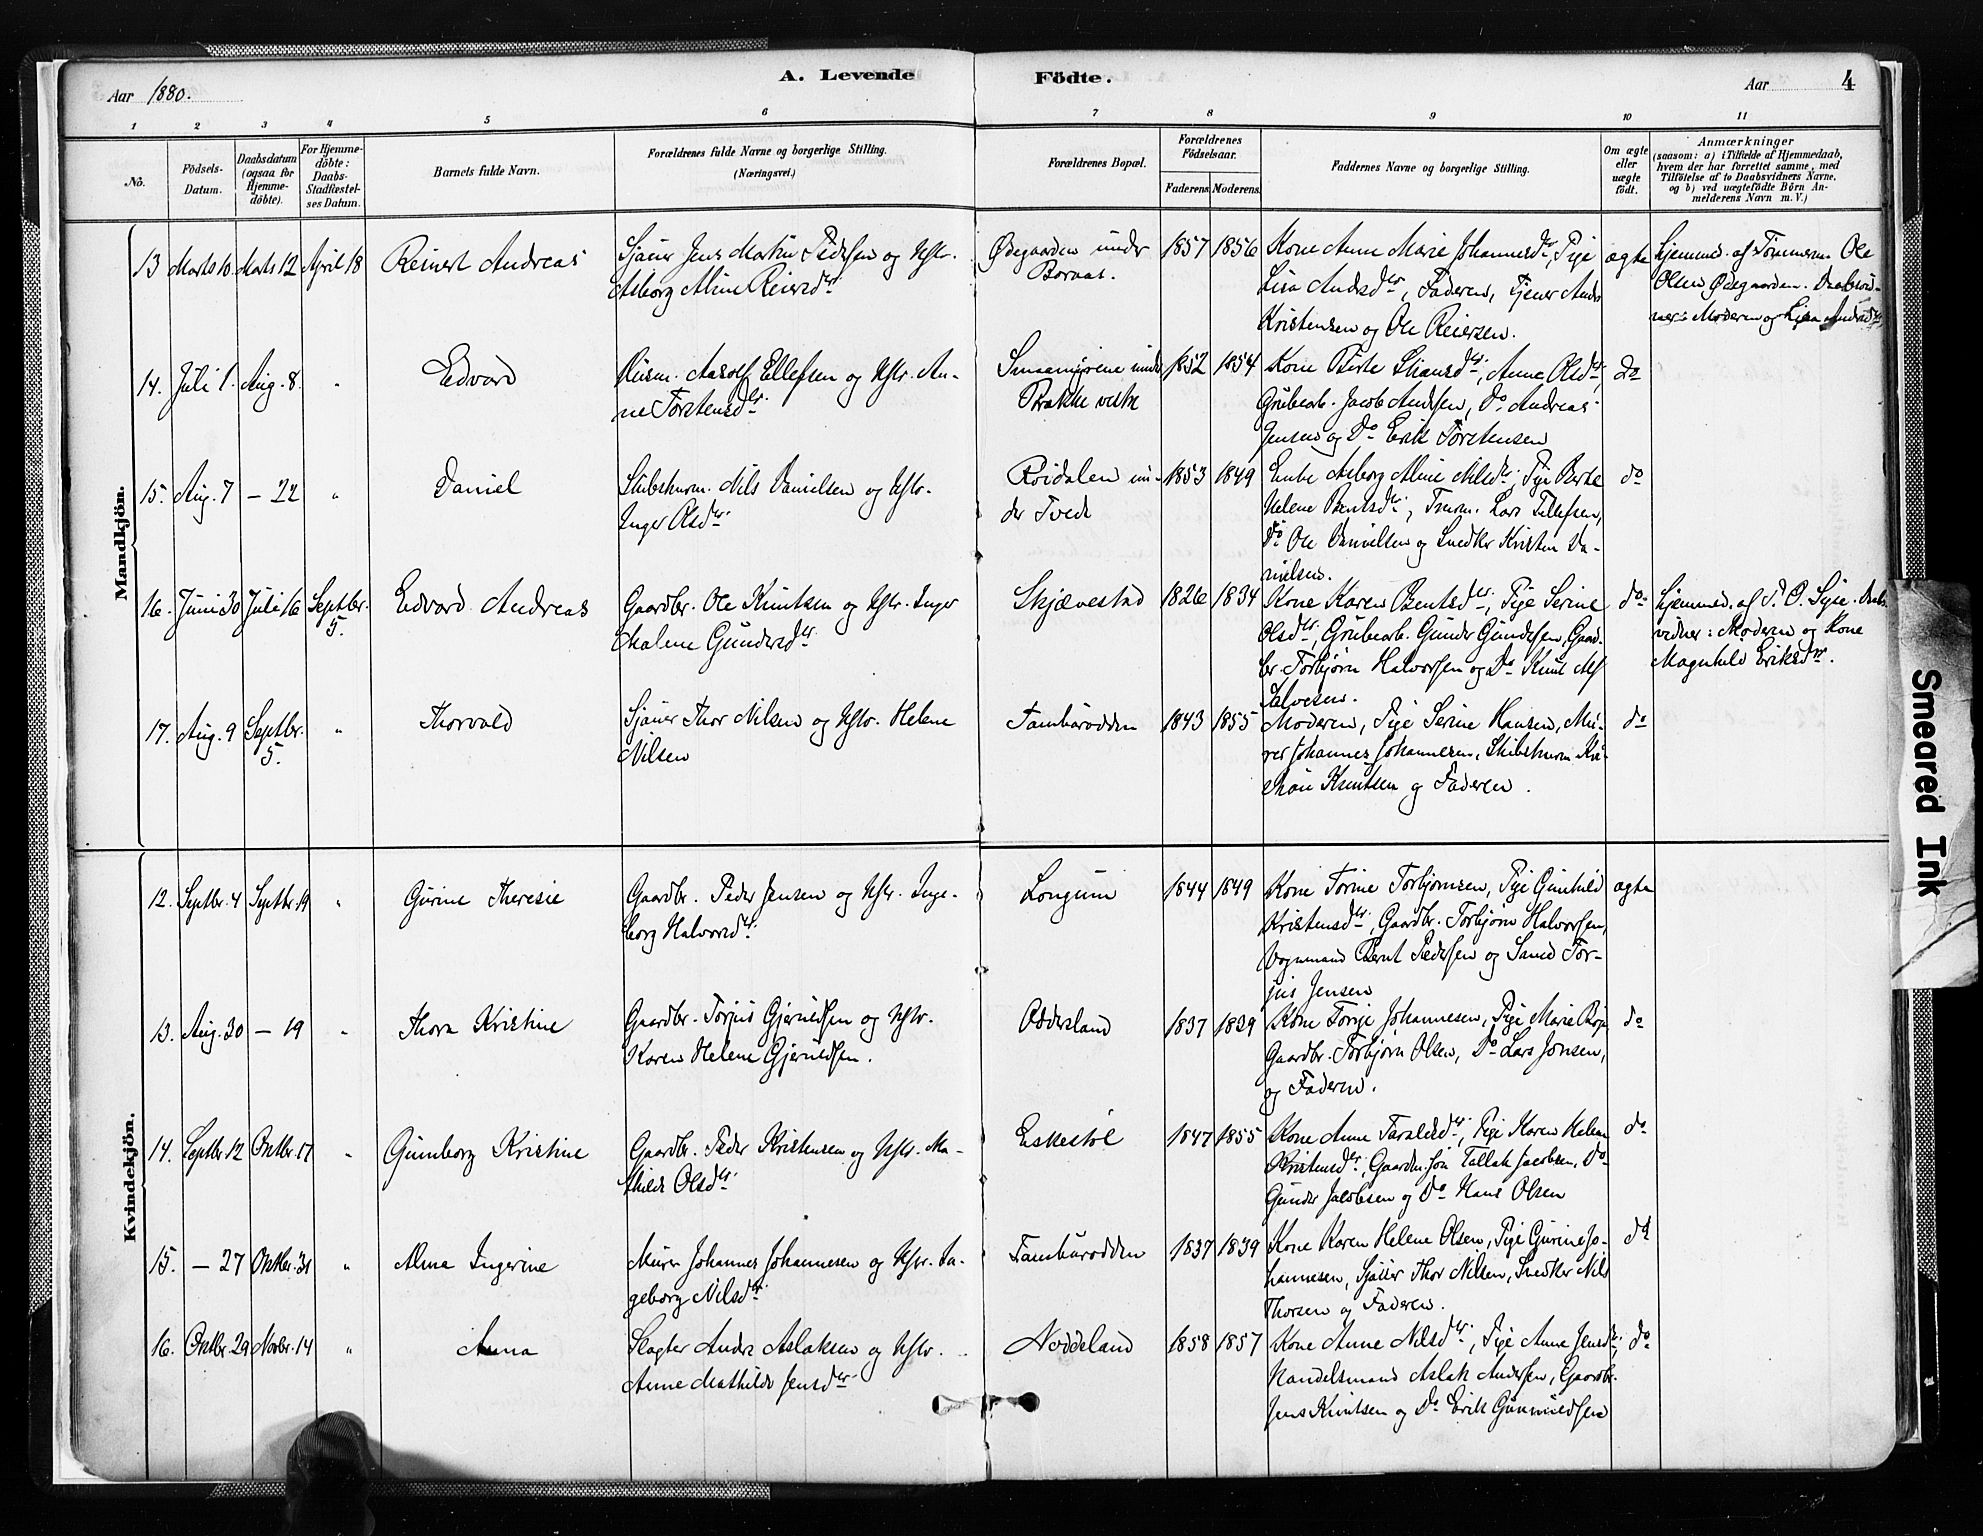 A. Levende Födte.
Aar 1880.
Aar
4
1 2 3 4 5 6 7 8 9 10 11
No.
Födsels-Datum.
Daabsdatum (ogsaa for Hjemme-döbte).
For Hjemme-döbte: Daabs-Stadfæstel-ses Datum.
Barnets fulde Navn.
Forældrenes fulde Navne og borgerlige Stilling. (Næringsvei.)
Forældrenes Bopæl.
Forældrenes Födselsaar.
Faderens. Moderens.
Faddernes Navne og borgerlige Stilling.
Om ægte eller uægte födt.
Anmærkninger
(saasom: a) i Tilfælde af Hjemmedaab, hvem der har forrettet samme, med Tilföielse af to Daabsvidners Navne, og b) ved uægtefödte Börn Anmelderens Navn m. V.)
Mandkjön.
13 Marts 10. Marts 12 April 18 Reinert Andreas
Sjöuer Jens Martin Pedersen og Hstr.
Asborg Aline Reiersdtr.
Ødegaarden under
Boraas.
1857 1856
Kone Anne Marie Johannesdtr, Pige
Lisa Andsdtr, Faderen, Tjener Anders
Kristensen og Ole Reiersen.
ægte
Hjemmed. af Tömmerm. Ole
Olsen Ødegaarden. Daabsvid-
ner: Moderen og Lisa Andsdtr
14. Juli 1. Aug. 8. " Edvard
Husm. Aasolf Ellefsen og Hstr. An-
ne Torstensdtr.
Smaamyrene under
Brække vestre
1852 1854
Kone Berte Stiansdtr, Anne Olsdtr,
Grubearb. Jacob Andersen, Do Andreas
Jensen og Do Erik Torstensen
Do
15. Aug. 7 — 22 " Daniel
Skibstmrm. Nils Danielsen og Hstr.
Inger Olsdtr.
Röidalen un-
der Tvedt
1853 1849
Enke Asborg Aline Nilsdtr, Pige Berte
Helene Bentsdtr, Tmrm. Lars Tellefsen,
Do Ole Danielsen og Snedker Kristen Da-
nielsen.
do
16. Juni 30 Juli 16 Septbr. 5. Edvard Andreas
Gaardbr. Ole Knutsen og Hstr. Inger
Malene Gundersdtr.
Skjævestad
1826 1834
Kone Karen Bentsdtr, Pige Serine
Olsdtr, Grubearb. Gunder Gundersen, Gaard-
br. Torbjörn Halvorsen og Do Knut Alf
Salvesen.
do
Hjemmed. af P. O. Lyse. Daabs-
vidner: Moderen og Kone
Magnhild Eriksdtr.
17. Aug. 9 Septbr. 5. " Thorvald
Sjöuer Thor Nilsen og Hstr. Helene
Nilsen
Tambarodden
1843 1855
Moderen, Pige Serine Hansen, Mu-
rer Johannes Johannesen, Skibstmrm. Kri-
Knutsen og Faderen.
do
Kvindekjön.
12. Septbr. 4 Septbr. 19 " Gurine Theresie
Gaardbr. Peder Jensen og Hstr. Inge-
borg Halvorsdtr.
Longum
1844 1849
Kone Torine Torbjörnsen, Pige Gunhild
Kristensdtr, Gaardbr. Torbjörn Halvorsen,
Vognmand Bernt Pedersen og Sand Tor-
jus Jensen
ægte
13. Aug. 30 — 19 " Thora Kristine
Gaardbr. Torjus Gjeruldsen og Hstr.
Karen Helene Gjeruldsen.
Oddersland
1837 1839
Kone Torije Johannesen, Pige Marie Boje
Gaardbr. Torbjörn Olsen, Do Lars Jonsen,
og Faderen.
do
14. Septbr. 12 Oktbr. 17 " Gunborg Kristine
Gaardbr. Peder Kristensen og Hstr. Ma-
thilde Olsdtr.
Eskestöl
1847 1855
Kone Anne Taraldsdtr, Pige Karen Helene
Kristensdtr, Gaardm. sön Tallak Jacobsen, Do
Gunder Jacobsen og Do Hans Olsen
do
15. — 27 Oktbr. 31 " Alma Ingerine
Murer Johannes Johannesen og Hstr. In-
geborg Nilsdtr.
Tambarodden
1837 1839
Kone Karen Helene Olsen, Pige Gurine Jo-
hannesen, Sjöuer Thor Nilsen, Snedker Nils
Thorsen og Faderen.
do
16. Oktbr. 29 Novbr. 14 " Anna
Slagter Andr. Aslaksen og Hstr.
Anne Mathilde Jensdtr.
Noddeland
1858 1857
Kone Anne Nilsdtr, Pige Anne Jensdtr,
Handelsmand Aslak Andersen, Gaardbr.
Jens Knutsen og Do Erik Gunvuldsen
do
Smeared Ink